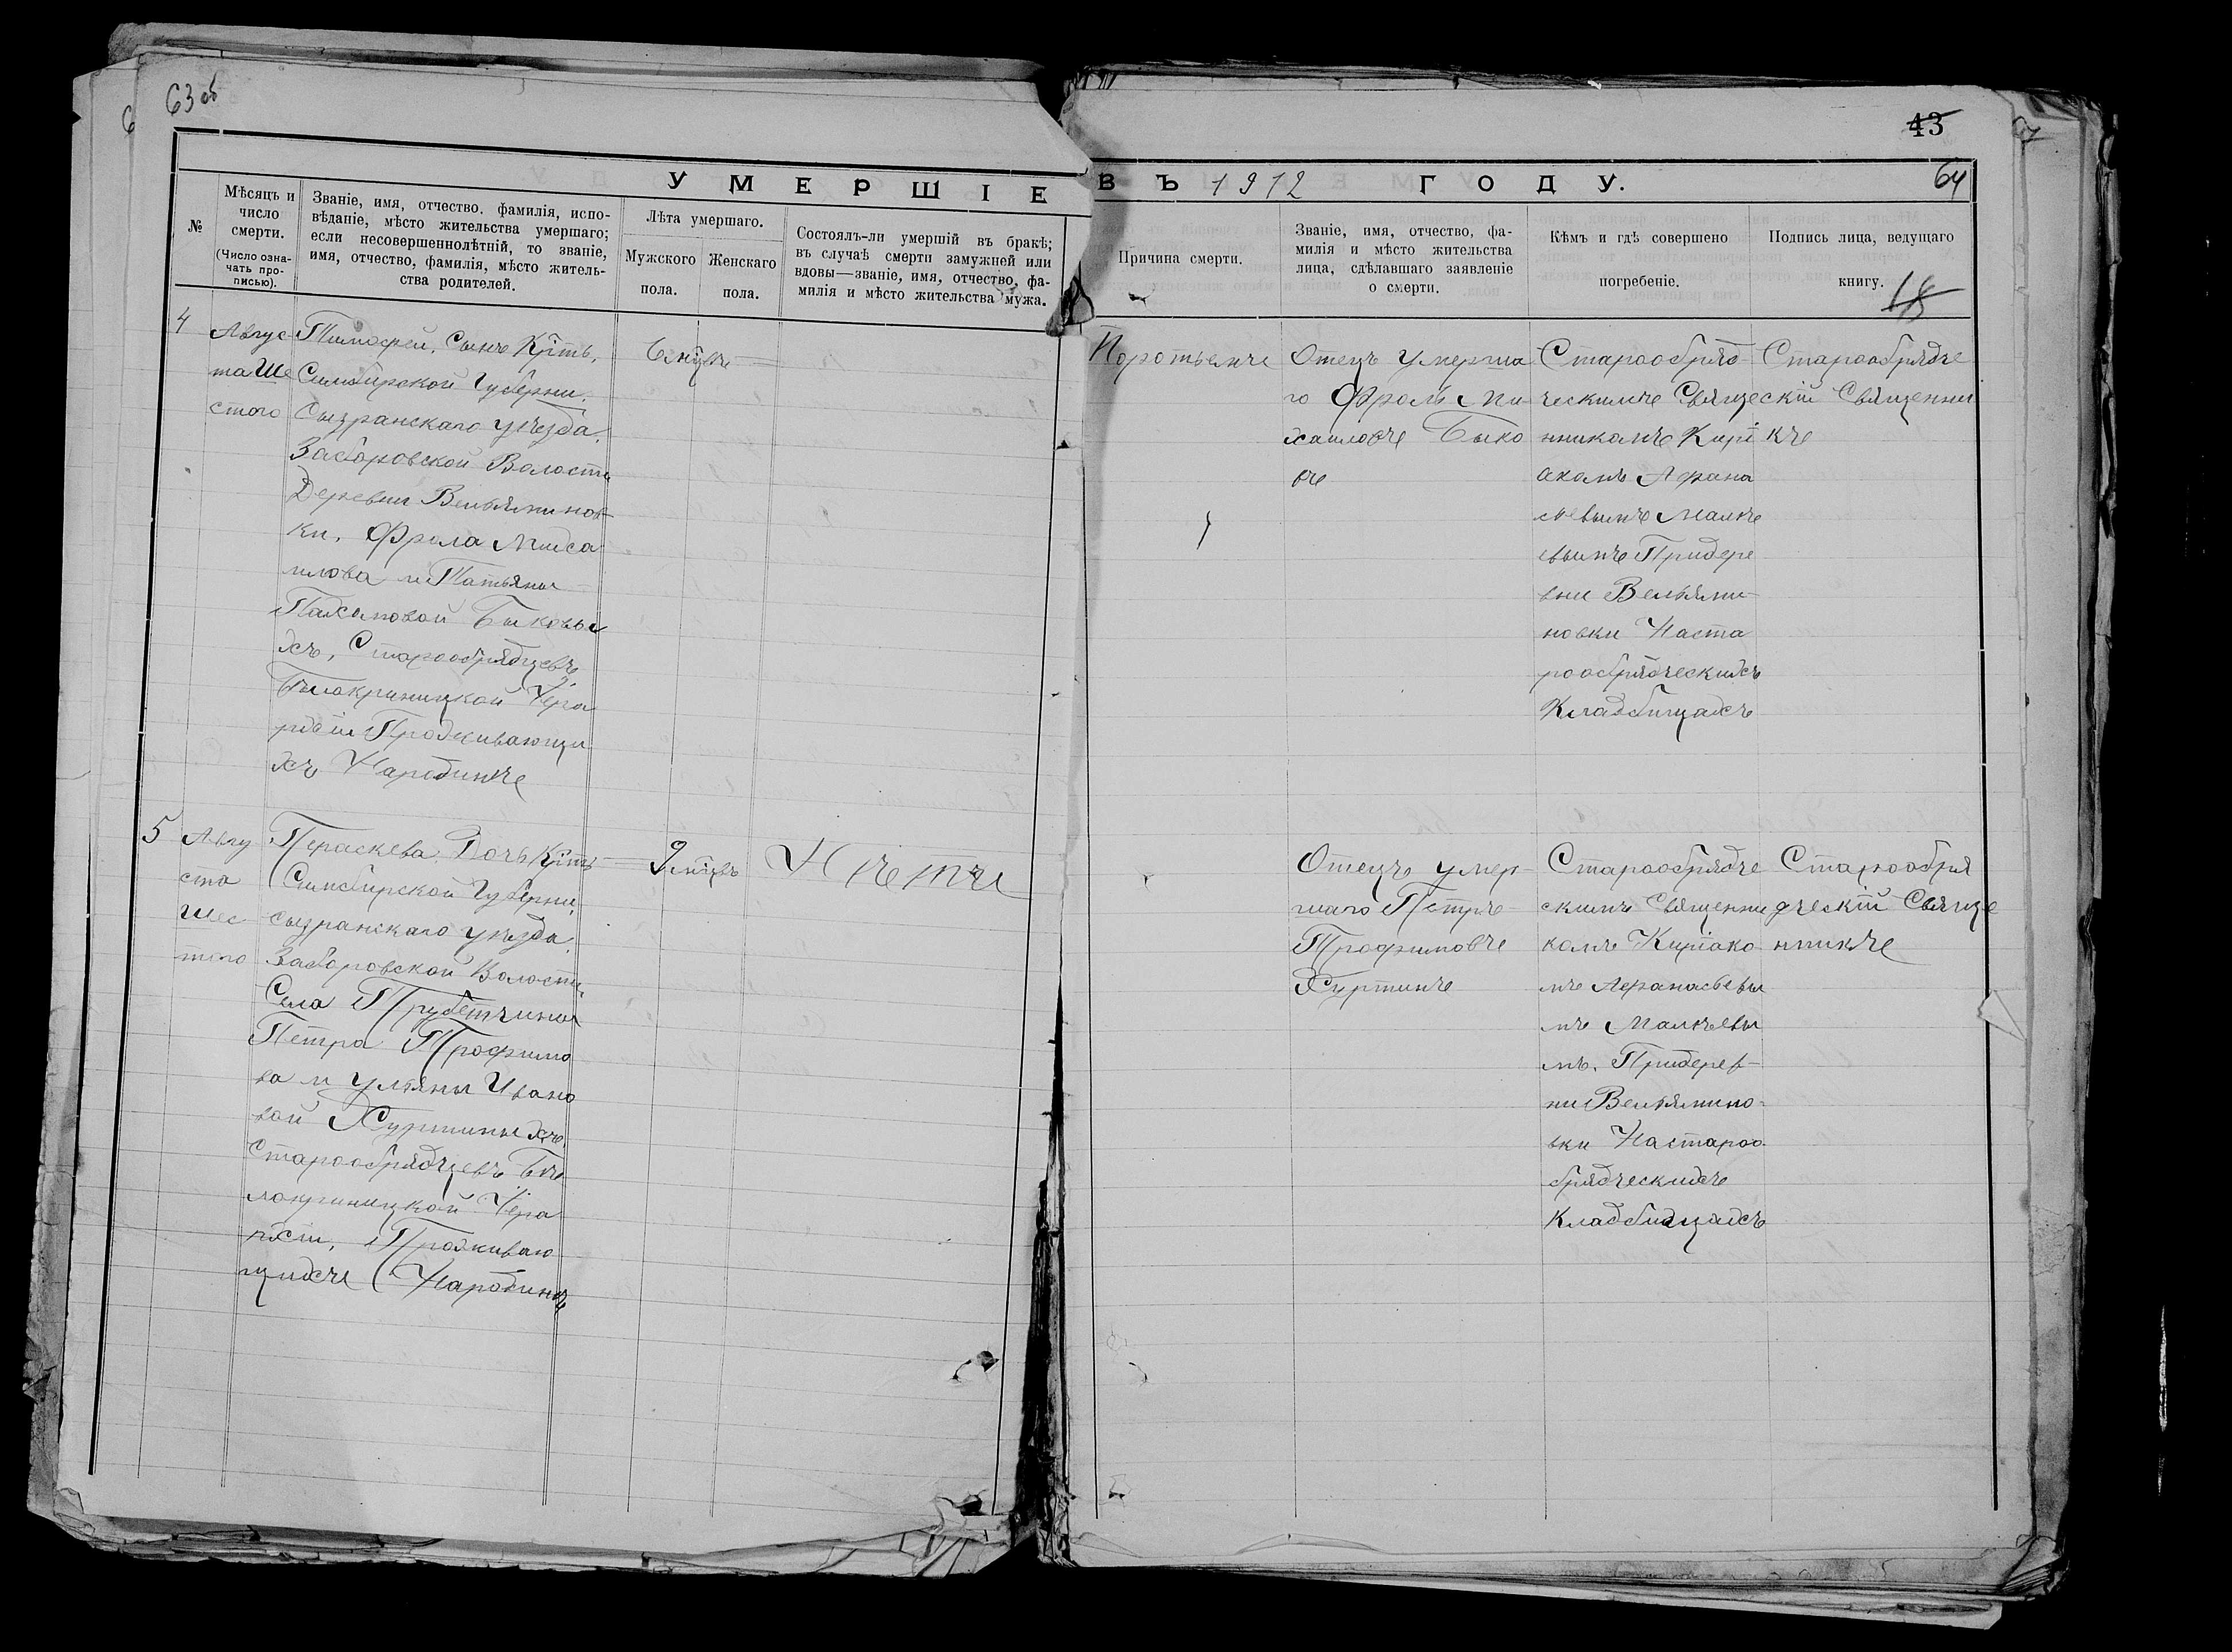 63 об
43
УМЕРШІЕ ВЪ 1912 ГОДУ.
64
№
Мѣсяцъ и
число
смерти.
(Число озна-
чать про-
писью).
Званіе, имя, отчество. фамилія, испо-
вѣданіе, мѣсто жительства умершаго;
если несовершеннолѣтній, то званіе,
имя, отчество, фамилія, мѣсто житель-
ства родителей.
Лѣта умершаго.
Мужского
пола.
Женскаго
пола.
Состоялъ-ли умершій въ бракѣ;
въ случаѣ смерти замужней или
вдовы—званіе, имя, отчество, фа-
милія и мѣсто жительства мужа.
Причина смерти.
Званіе, имя, отчество, фа-
милія и мѣсто жительства
лица, сдѣлавшаго заявленіе
о смерти.
Кѣмъ и гдѣ совершено
погребеніе.
Подпись лица, ведущаго
книгу.
4
Авгус
та Ше
стого
Тимофей, Сынъ Крѣтъ,
Симбирской Губерни,
Сызранскаго уѣзда,
Заборовской Волости
Деревни Вельяминов-
ки, Фрола Миха
илова и Татьяны
Пахомовой Быковы
хъ, Старообрядцевъ
Бѣлокриницкой Іера
рхіи Проживающи
хъ Народинѣ
6 мцвъ
Поротьемъ
Отецъ умерша
го Фролъ Ми
хаиловъ Быко
въ
Старообряд
ческимъ Свяще
нникомъ Кирі
акомъ Афана
севымъ Малѣе
вымъ Придере
вни Вельями-
новки Наста
рообрядческихъ
Кладбищахъ
Старообрядче
скій Священни
къ
5
Авгу
ста
Шес
таго
Пераскева, Дочь Крѣтъ
Симбирской Губерни,
сызранскаго уѣзда,
Заборовской Волости,
Села Трубетчины
Петра Трофимо
ва и Ульяны Ивано
вой Хуртиныхъ
Старообрядцевъ Бѣ
локриницкой Іера
рхіи, Проживаю
щихъ Народинѣ
9 мцвъ
Нѣтъ
Отецъ умер-
шаго Петръ
Трофимовъ
Хуртинъ
Старообрядче
скимъ Священни
комъ Киріако
мъ Афанасьевы
мъ Малѣевы
мъ. Придерев-
ни Вельямино-
вки Настароо
брядческихъ
Кладбищахъ
Старообря
дческій Свяще
нникъ